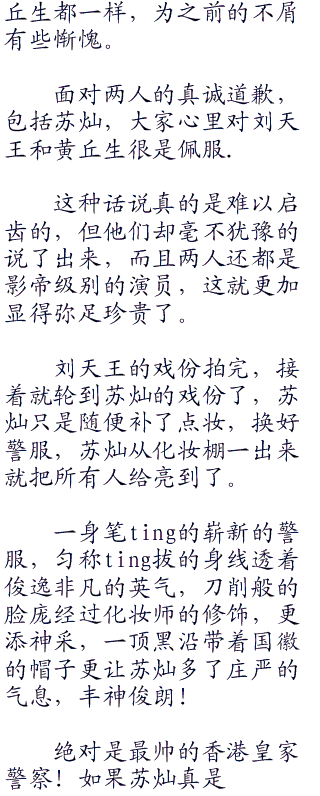 丘生都一样，为之前的不屑
有些惭愧。
面对两人的真诚道歉，
包括苏灿，大家心里对刘天
王和黄丘生很是佩服.
这种话说真的是难以启
齿的，但他们却毫不犹豫的
说了出来，而且两人还都是
影帝级别的演员，这就更加
显得弥足珍贵了。
刘天王的戏份拍完，接
着就轮到苏灿的戏份了，苏
灿只是随便补了点妆，换好
警服，苏灿从化妆棚一出来
就把所有人给亮到了。
一身笔ting的崭新的警
服，匀称ting拔的身线透着
俊逸非凡的英气，刀削般的
脸庞经过化妆师的修饰，更
添神采，一顶黑沿带着国徽
的帽子更让苏灿多了庄严的
气息，丰神俊朗！
绝对是最帅的香港皇家
警察！如果苏灿真是